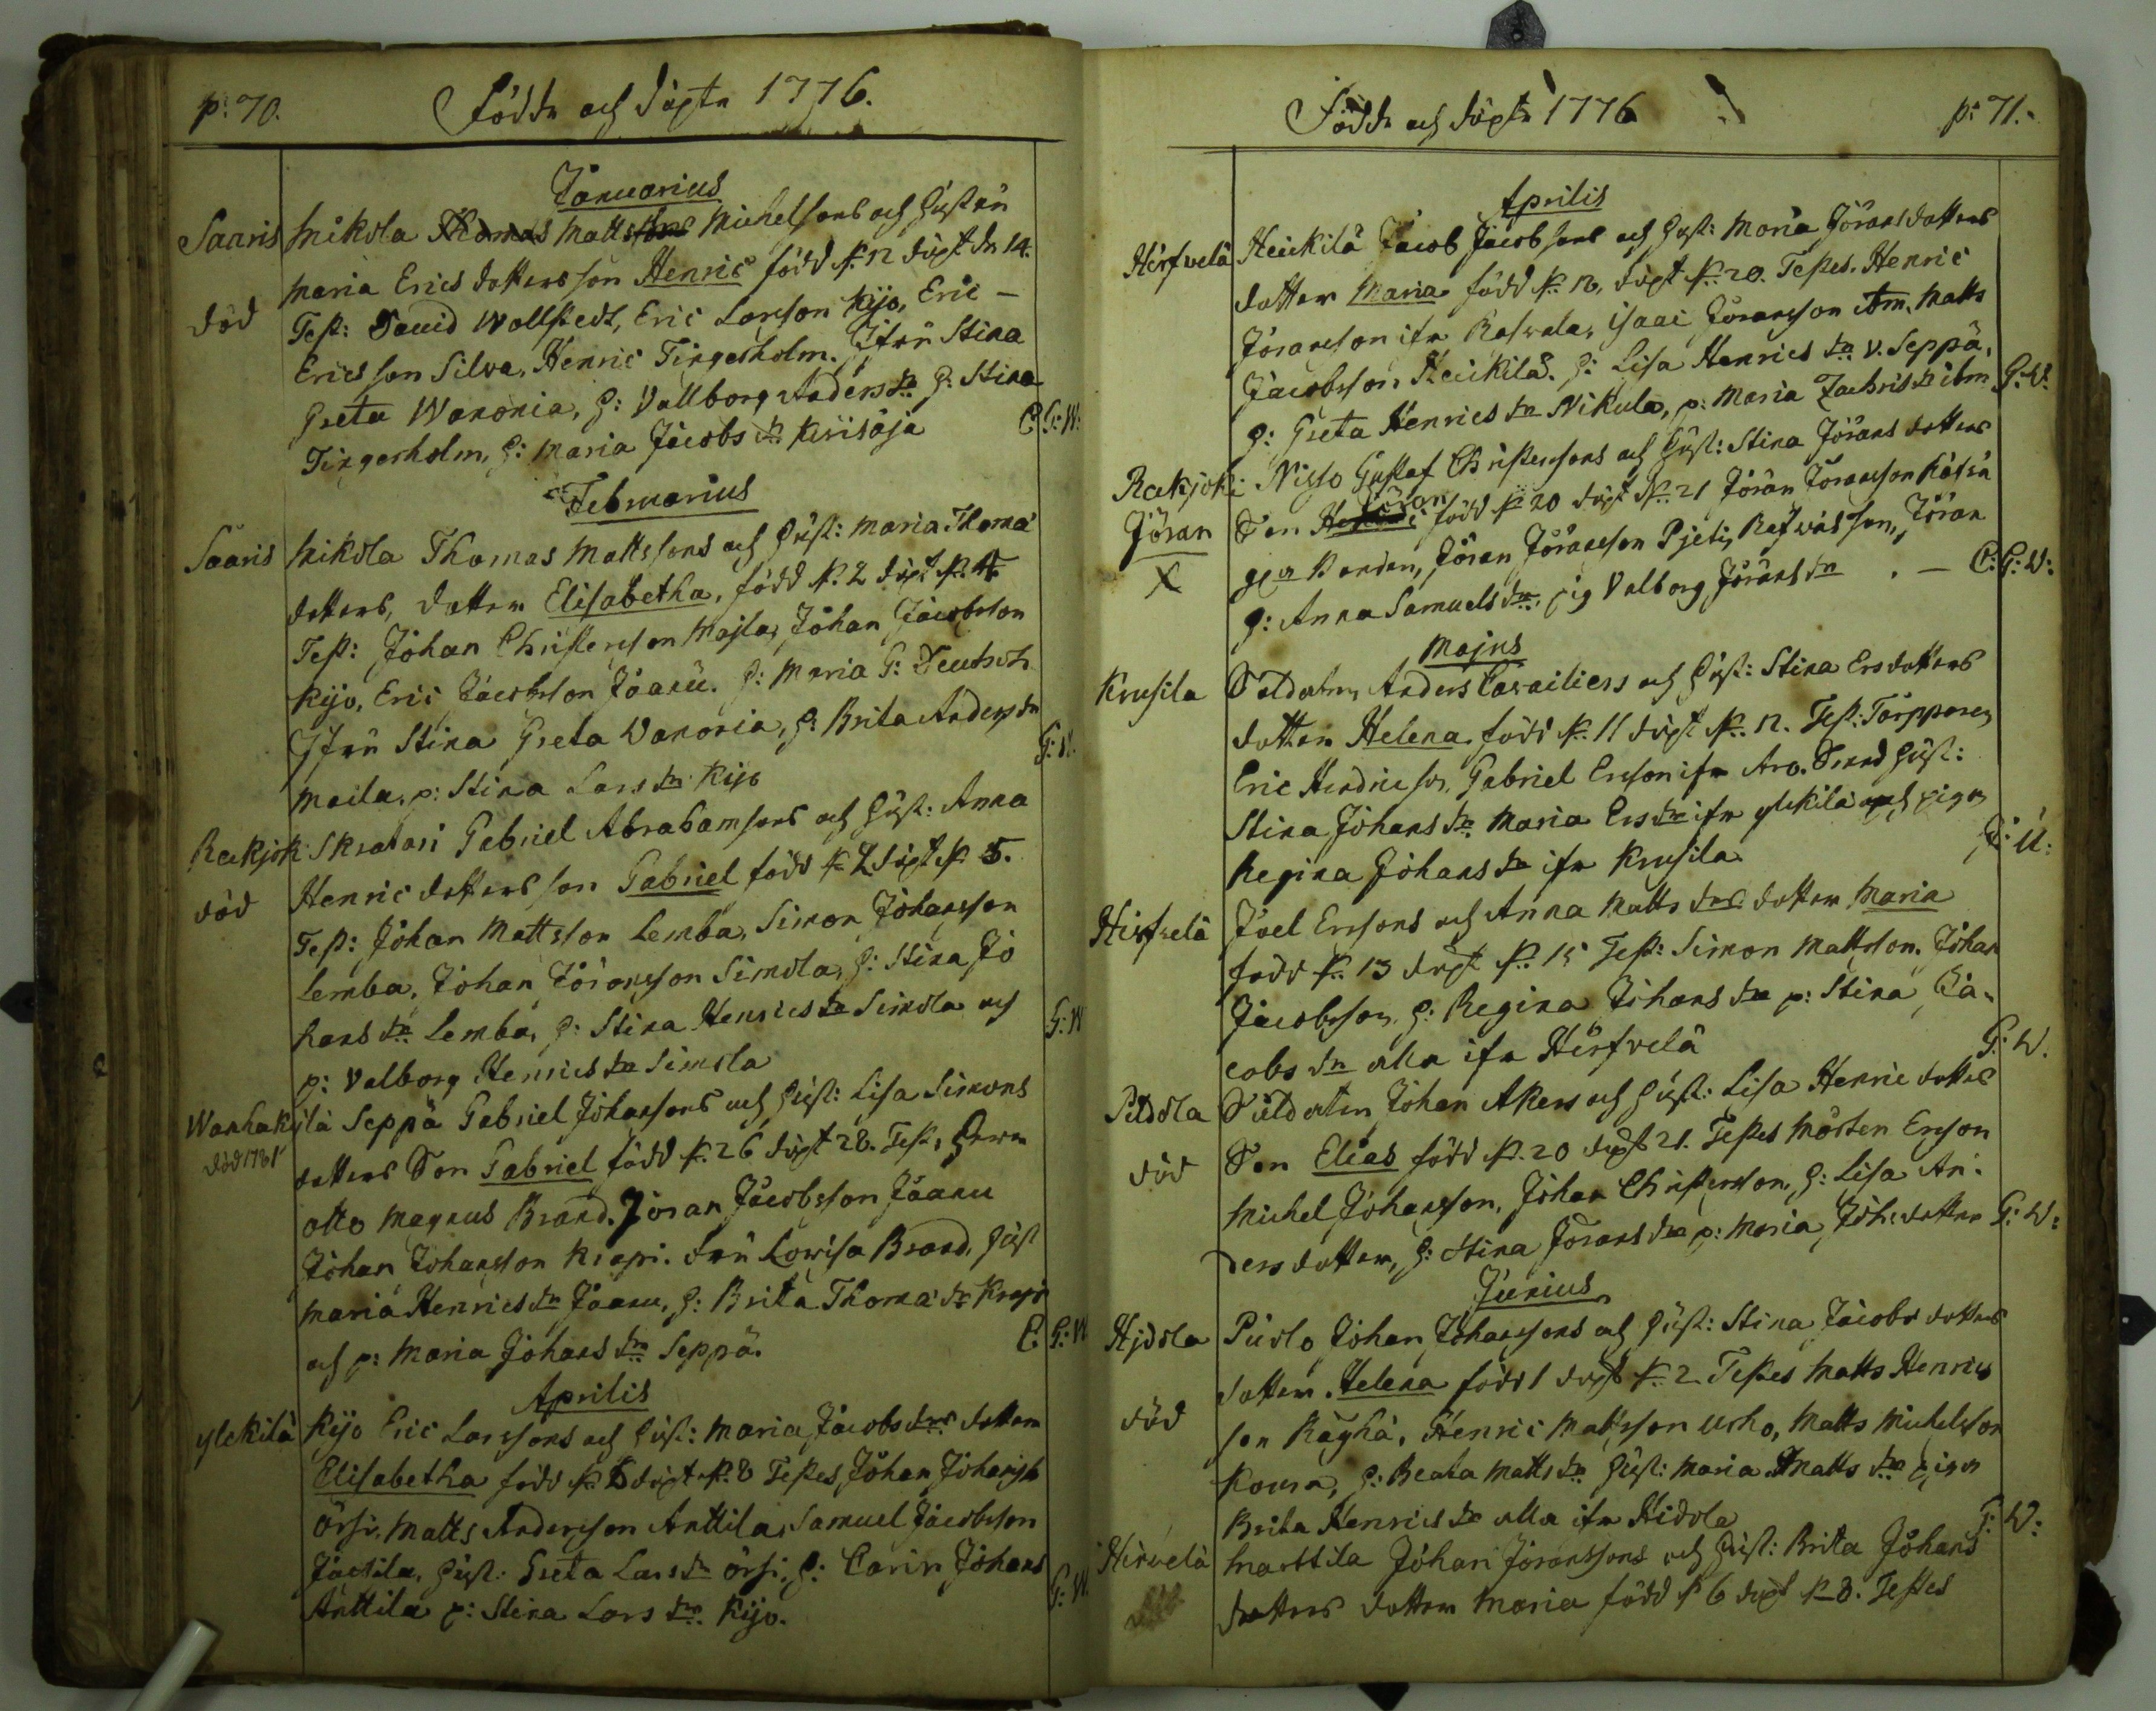 p: 70. Födde och döpte 1776.
Januarius
Saaris Mikola Thomas Mattssons Michelsons och Hustru
Maria Erics dotters son Henric född d. 12 döpt dn 14.
död Test: David Wallstedt, Eric Larsson Kijo, Eric –
Ericsson Silva, Henric Tingerholm. Jfru Stina
Greta Wanonia, h: Vallborg Anders dr h: Stina
Tingerholm, h: Maria Jacobs dr Kirisoja C G: W:
Februarius
Saaris Mikola Thomas Mattssons och Hust: Maria Thomæ
dotters, dotter Elisabetha, född d. 2 döpt d. 4
Test: Johan Christersson Majla, Johan Jacobsson
Kijo, Eric Jacobsson Jaanu. h: Maria G: Deutsch
Jfru Stina Greta Wanonia, h: Brita Anders dr
Maila, p: Stina Lars dr Kijo G: W.
Reckjok Skratari Gabriel Abrahamsons och Hust: Anna
Henric dotters son Gabriel född d. 2 döpt d. 5.
död Test: Johan Mattsson Lemba, Simon Johansson
Lemba, Johan Jöransson Simola, h: Stina Jo
hans dr Lemba, h: Stina Henrics dr Simola och
p: Valborg Henrics dr Simola G: W
Wanhakylä Seppä Gabriel Johansons och Hust: Lisa Simons
död 1781 dotters Son Gabriel född d. 26 döpt 28. Test, Herr
Otto Magnus Brand. Jöran Jacobsson Jaanu
Johan Johansson Krapi. Fru Lowisa Brand, Hust
Maria Henrics dr Jaanu, h: Brita Thomæ dr Krapi
och p: Maria Johans dr Seppä. C G: W
Aprilis
Ylekilä Kijo Eric Larssons och Hust: Maria Jacobs drs dotter
Elisabetha född d. 6 döpt d. 8 Testes Johan Johansson
Örsi, Matts Andersson Anttila, Samuel Jacobsson
Jactila, Hust: Greta Lars dr Örsi, h: Carin Johans
Anttila p: Stina Lars dr Kijo. G: W.
Födde och döpte 1776 p: 71.
Aprilis
Hirfvelä Heickilä Jacob Jacobsons och Hust: Maria Jörans dotters
dotter Maria född d. 18, döpt d. 20. Testes. Henric
Jöransson ifr Rasvala, Isaac Jöransson ibm. Matts
Jacobsson Heickilä. h: Lisa Henrics dr v. Seppä,
h: Greta Henrics dr Nikula, p: Maria Zachris dr ibm G: W:
Reckjoki Nisso Gustaf Christersons och Hust: Stina Jörans dotters
Jöran Son Henric Jöran född d. 20 döpt d. 21 Jöran Jöransson
X Bonden, Jöran Jöransson Pjeti, Jöran
h: Anna Samuels dr, pig Valborg Jörans dr . – C: G: W:
Majus
Krusila Soldaten Anders Cavailiers och Hust: Stina Ers dotters
dotter Helena född d. 11 döpt d. 12. Test: Torpparen
Eric Hendricson, Gabriel Ersson ifr Aro. Hust:
Stina Johans dr Maria Ers dr ifr Ylekilä och pigan
Regina Johans dr ifr Krusila G: W:
Hirfvelä Joel Erssons och Anna Matts drs dotter Maria
född d. 13 döpt d. 15 Test: Simon Mattsson. Johan
Jacobsson, h: Regina Johans dr p: Stina Ja-
cobs dr alla ifr Hirfvelä G: W.
Pidola Soldaten Johan Akers och Hust: Lisa Henric dotters
död Son Elias född d. 20 döpt 21. Testes Mårten Ersson
Michel Johansson, Johan Christersson, h: Lisa An-
ders dotter, h: Stina Jörans dr p: Maria Joh: dotter G: W:
Junius
Hjdola Pudlo Johan Johanssons och Hust: Stina Jacobs dotters
dotter Helena född 1 döpt d. 2 Testes Matts Henrics
död son Rägha, Henric Mattsson Urho, Matts Michelson
Koura, h: Beata Matts dr Hust: Maria Matts dr pigan
Brita Henrics dr alla ifr Hidola G: W:
Hirvelä Marttila Johan Jöranssons och Hust: Brita Johans
död dotters dotter Maria född d 6 döpt d 8. Testes